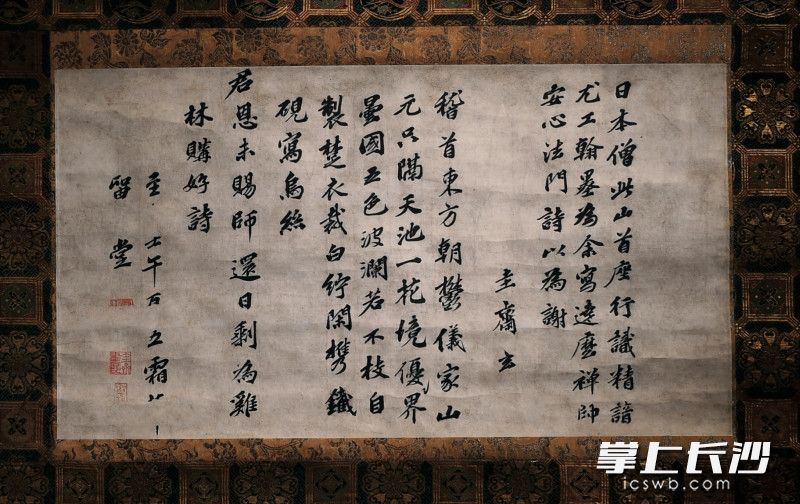 日本僧此山首座行識精諳
尤工翰墨為余寫達磨禪師
安心法門詩以為謝
圭齋玄
稽首東方朝欝儀家山
元只隔天池一花境優界
曇國五色波瀾若不枝自
製楚衣裁白紵閑携鐵
硯寫烏絲
君恩未賜師還日剩為雞
林購好詩
至 壬午百五霜
留堂
掌上长沙
icswb.com